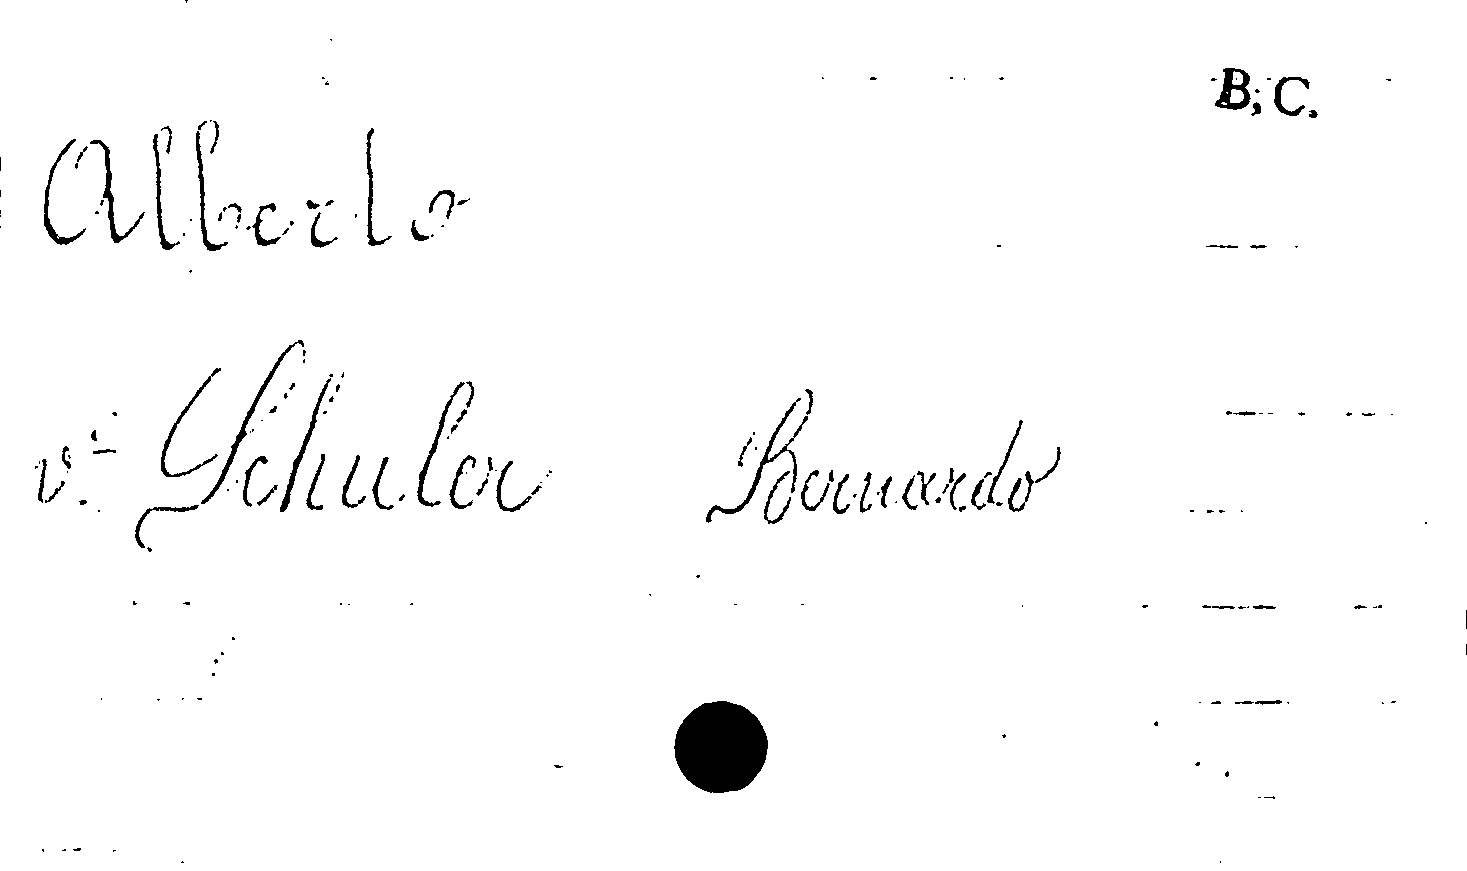 B, C.
Alberto
v. Schuler Bernardo